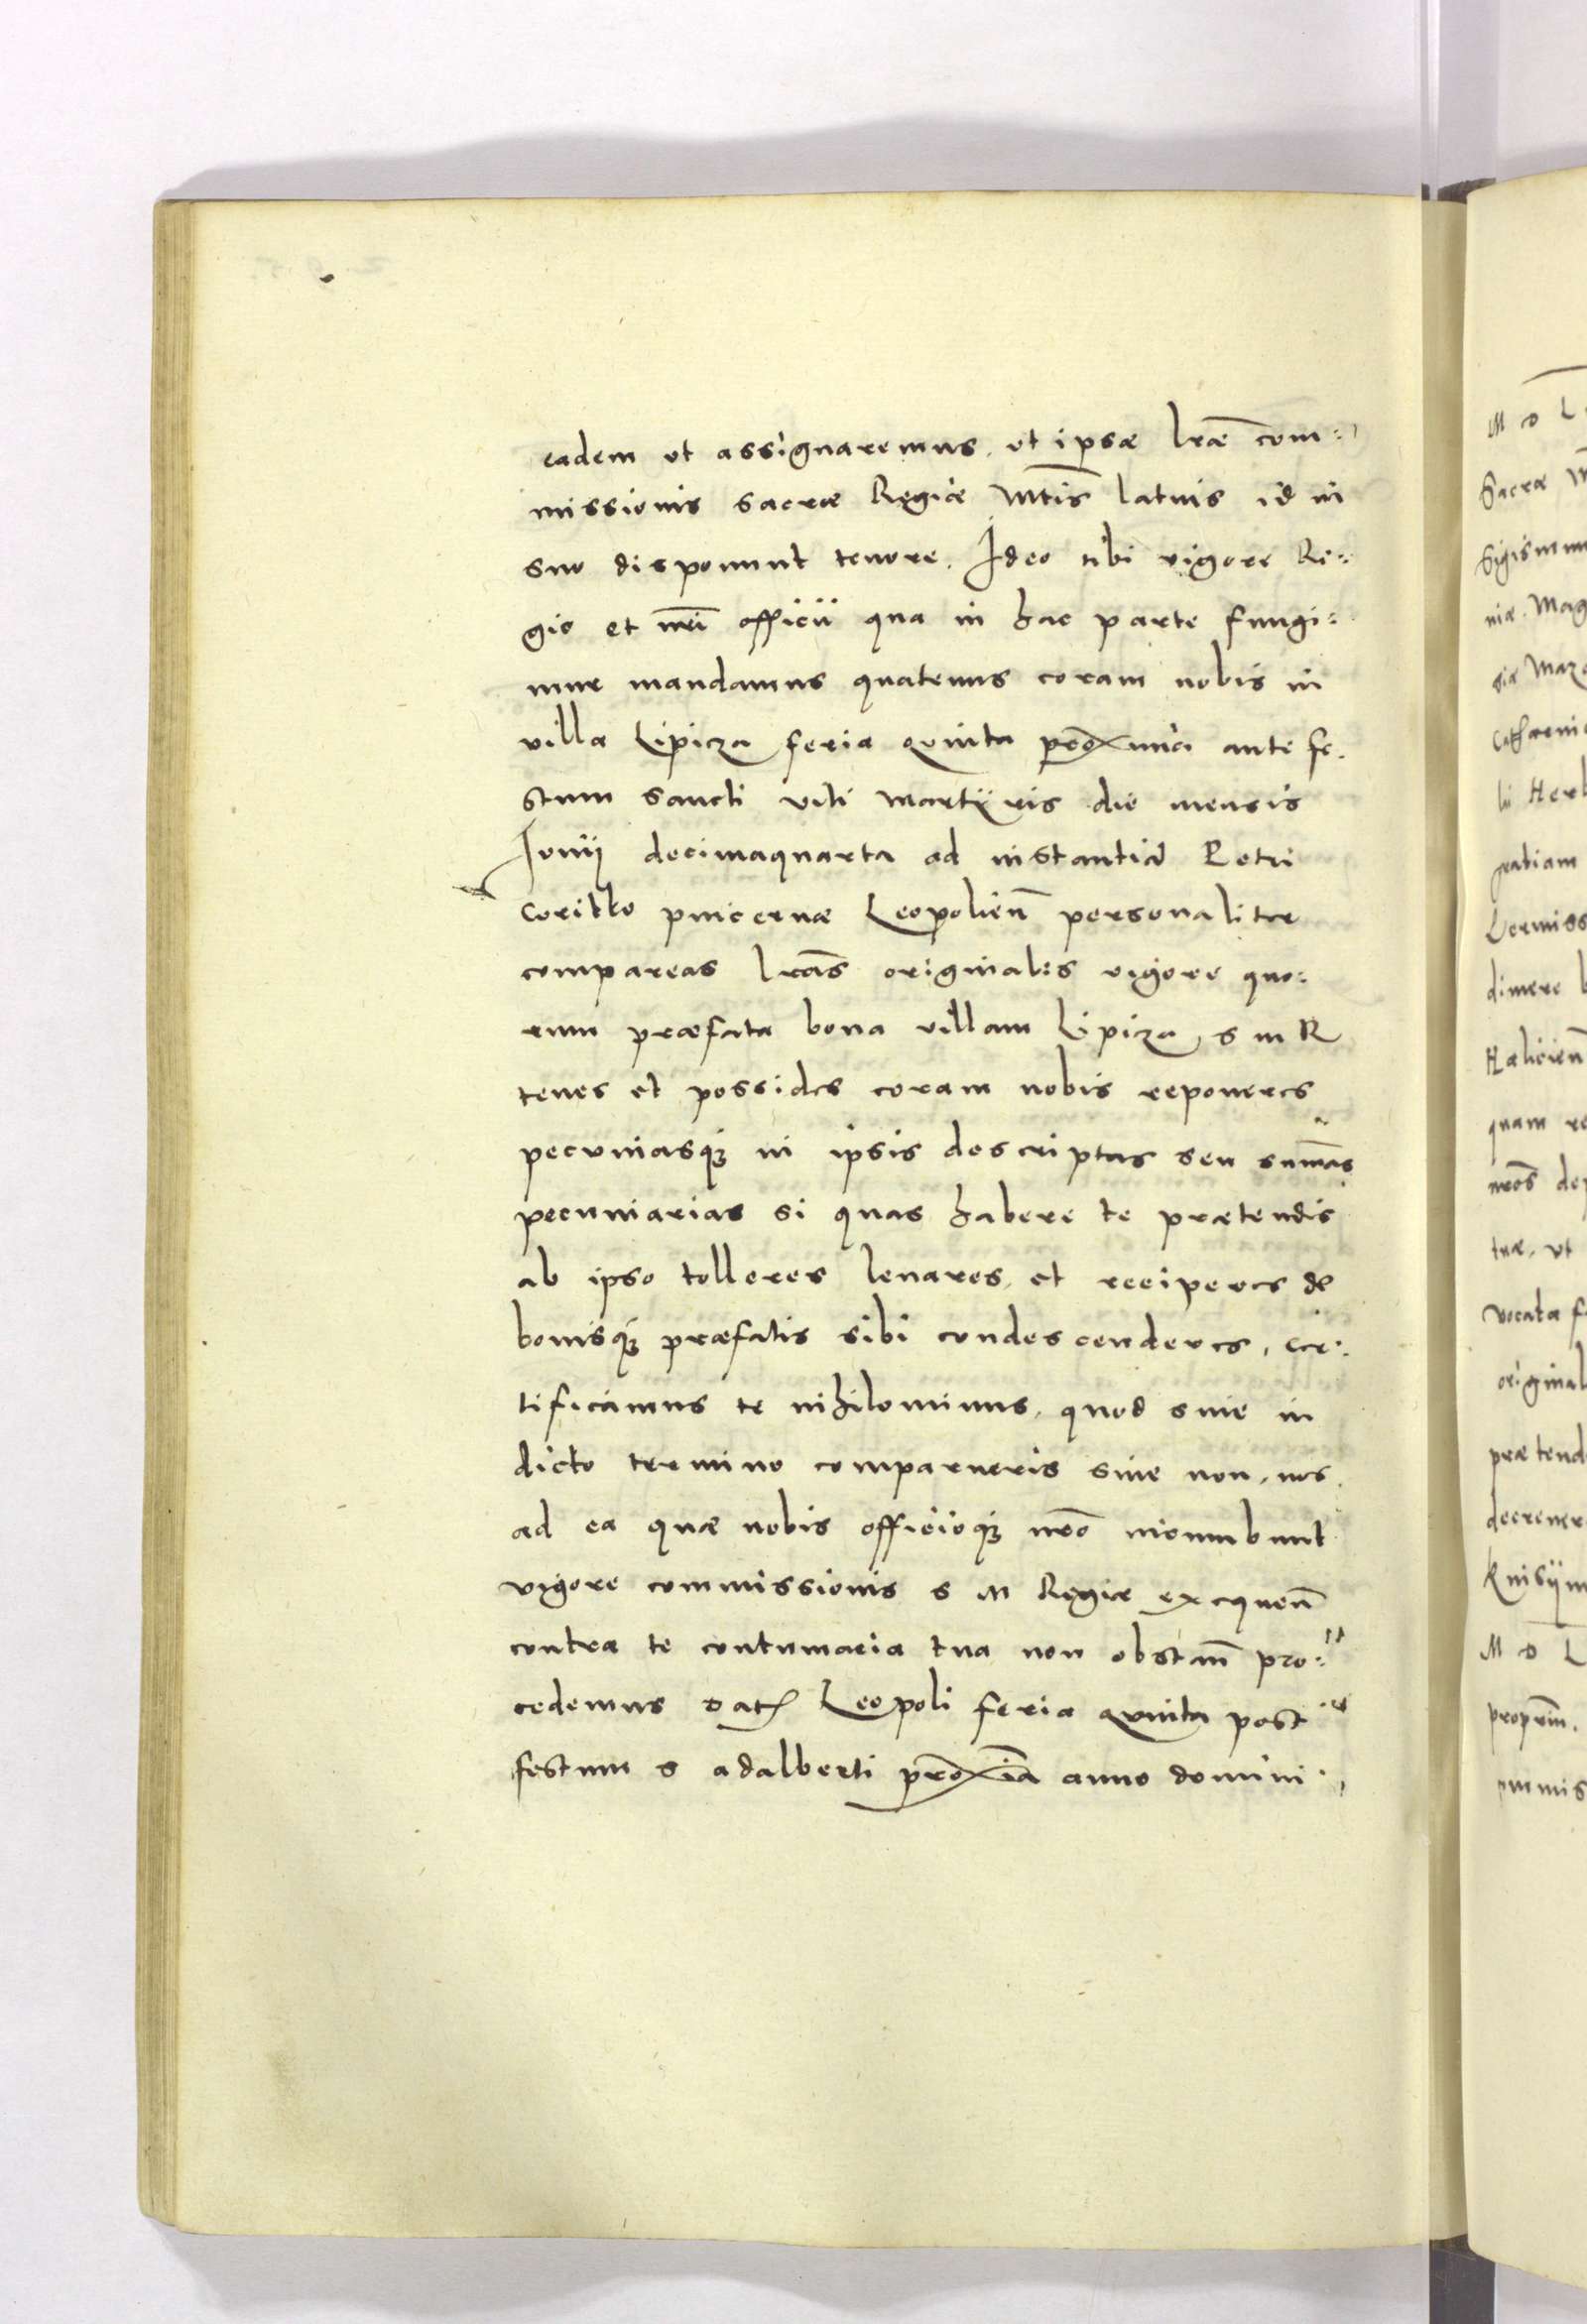 eadem ut assignaremus, ut ipsæ lræ com:
missionis sacræ Regiæ Mtis latius id in
suo disponunt tenore. Ideo tibi vigore Re:
gio et nri officii qua in hac parte fungi:
mur mandamus quatenus coram nobis in
villa Lipicza feria quinta proxima ante fe.
stum sancti viti martÿris die mensis
Junij decimaquarta ad instantiā Petri
Coritko pincernæ Leopolien personaliter
compareas lras originales vigore quo:
rum præfata bona villam Lipicza s m R
tenes et possides coram nobis reponeres
pecuniasq3 in ipsis descriptas seu summas
pecuniarias si quas habere te prætendis
ab ipso tolleres levares, et reciperes de
bonisq3 præfatis sibi condescenderes, cer:
tificamus te nihilominus, quod sive in
dicto termino comparueris sive non, nos
ad ea quæ nobis officioq3 nro incumbunt
vigore commissionis s M Regiæ exequen
contra te contumacia tua non obstan pro:
cedemus Dat Leopoli feria quinta post
festum s adalberti proxima anno domini
M D L
Sacræ
Sigismun
niæ. Mag
siæ Mazo
lii Herb
gratiam
dimere
Halicien
quam re
nros dep
tuæ, ut
vocata f
original
prætend
decrever
M D L
propriu.